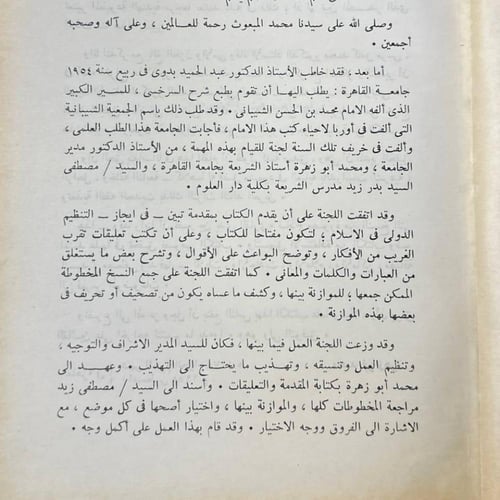 وصلى الله على سيدنا محمد المبعوث رحمة للعالمين ، وعلى آله وصحبه
أجمعين .
أما بعد ، فقد خاطب الأستاذ الدكتور عبد الحميد بدوى فى ربيع سنة ١٩٥٤
جامعة القاهرة : يطلب اليها أن تقوم بطبع شرح السرخسى ، للسير الكبير
الذى ألفه الامام محمد بن الحسن الشيبانى . وقد طلب ذلك باسم الجمعية الشيبانية
التى ألفت فى أوربا لاحياء كتب هذا الامام ، فأجابت الجامعة هذا الطلب العلمى ،
وألفت فى خريف تلك السنة لجنة للقيام بهذه المهمة ، من الأستاذ الدكتور مدير
الجامعة ، ومحمد أبو زهرة أستاذ الشريعة بجامعة القاهرة ، والسيد / مصطفى
السيد بدر زيد مدرس الشريعة بكلية دار العلوم .
وقد اتفقت اللجنة على أن يقدم الكتاب بمقدمة تبين ــ فى ايجاز ــ التنظيم
الدولى فى الاسلام ؛ لتكون مفتاحا للكتاب ، وعلى أن تكتب تعليقات تقرب
الغريب من الأفكار ، وتوضح البواعث على الأقوال ، وتشرح بعض ما يستغلق
من العبارات والكلمات والمعانى . كما اتفقت اللجنة على جمع النسخ المخطوطة
الممكن جمعها ؛ للموازنة بينها ، وكشف ما عساه يكون من تصحيف أو تحريف فى
بعضها بهذه الموازنة .
وقد وزعت اللجنة العمل فيما بينها ، فكان للسيد المدير الاشراف والتوجيه ،
وتنظيم العمل وتنسيقه ، وتهذيب ما يحتاج الى التهذيب . وعهد الى
محمد أبو زهرة بكتابة المقدمة والتعليقات . وأسند الى السيد / مصطفى زيد
مراجعة المخطوطات كلها ، والموازنة بينها ، واختيار أصحها فى كل موضع ، مع
الاشارة الى الفروق ووجه الاختيار . وقد قام بهذا العمل على أكمل وجه .